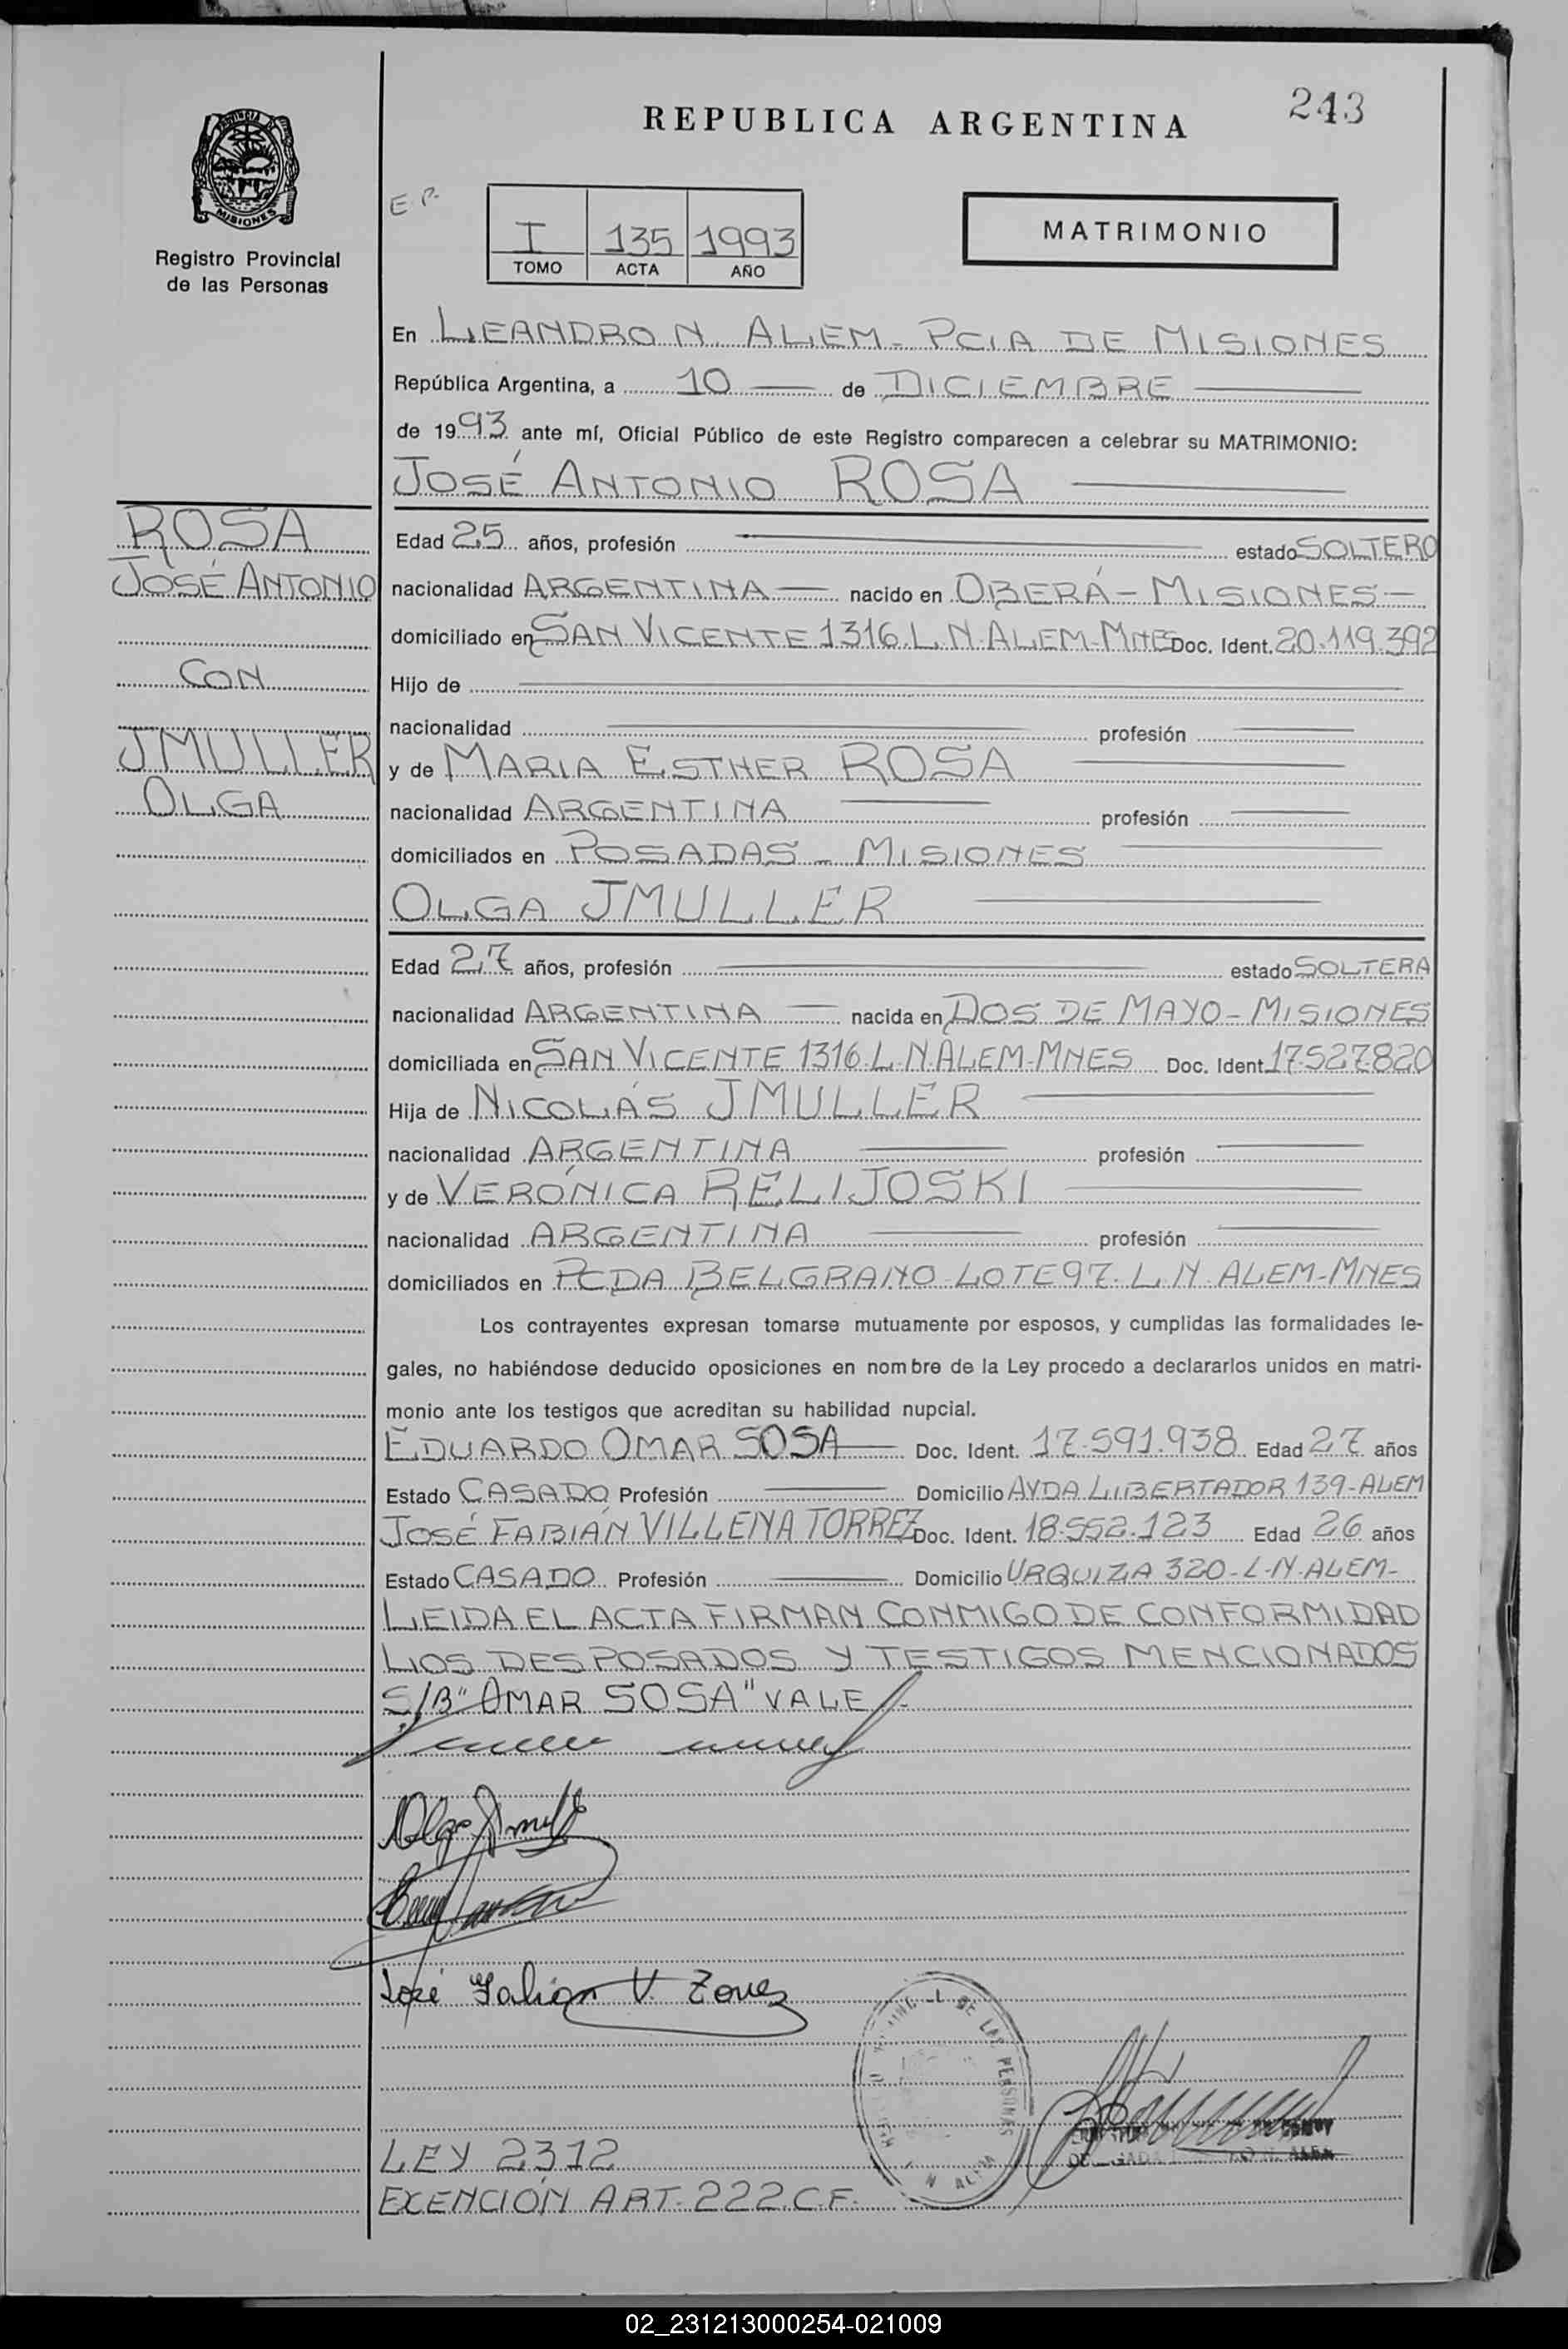 243
REPUBLICA ARGENTINA
PROVINCIA DE
MISIONES
Registro Provincial
de las Personas
E.P.
I 135 1993
TOMO ACTA AÑO
MATRIMONIO
En LEANDRO N. ALEM - PCIA DE MISIONES
República Argentina, a 10 de DICIEMBRE
de 1993 ante mí, Oficial Público de este Registro comparecen a celebrar su MATRIMONIO:
JOSÉ ANTONIO ROSA
ROSA
JOSÉ ANTONIO
CON
JMULLER
OLGA
Edad 25 años, profesión estado SOLTERO
nacionalidad ARGENTINA nacido en OBERÁ - MISIONES -
domiciliado en SAN VICENTE 1316.L.N.ALEM-MNES Doc. Ident. 20.119.392
Hijo de
nacionalidad profesión
y de MARIA ESTHER ROSA
nacionalidad ARGENTINA profesión
domiciliados en POSADAS - MISIONES
OLGA JMULLER
Edad 27 años, profesión estado SOLTERA
nacionalidad ARGENTINA nacida en DOS DE MAYO - MISIONES
domiciliada en SAN VICENTE 1316.L.N.ALEM-MNES Doc. Ident. 17.527.820
Hija de NICOLÁS JMULLER
nacionalidad ARGENTINA profesión
y de VERÓNICA RELIJOSKI
nacionalidad ARGENTINA profesión
domiciliados en PCDA BELGRANO-LOTE 97.L.N.ALEM-MNES
Los contrayentes expresan tomarse mutuamente por esposos, y cumplidas las formalidades le-
gales, no habiéndose deducido oposiciones en nombre de la Ley procedo a declararlos unidos en matri-
monio ante los testigos que acreditan su habilidad nupcial.
EDUARDO OMAR SOSA Doc. Ident. 17.591.938 Edad 27 años
Estado CASADO Profesión Domicilio AVDA LIBERTADOR 139-ALEM
JOSÉ FABIÁN VILLENA TORREZ Doc. Ident. 18.552.123 Edad 26 años
Estado CASADO Profesión Domicilio URQUIZA 320-L-N-ALEM-
LEIDA EL ACTA FIRMAN CONMIGO DE CONFORMIDAD
LOS DESPOSADOS Y TESTIGOS MENCIONADOS
S/B" OMAR SOSA" VALE.-
Olga Jmull
José Fabian V. Torrez
DE LAS PERSONAS
N ALEM
LEY 2312
EXENCIÓN ART. 222 C.F.
02_231213000254-021009